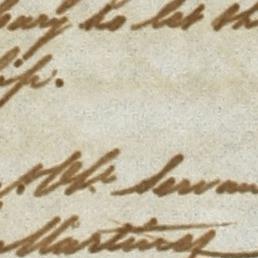 to let th
ip.
Obt Servan
Martinez